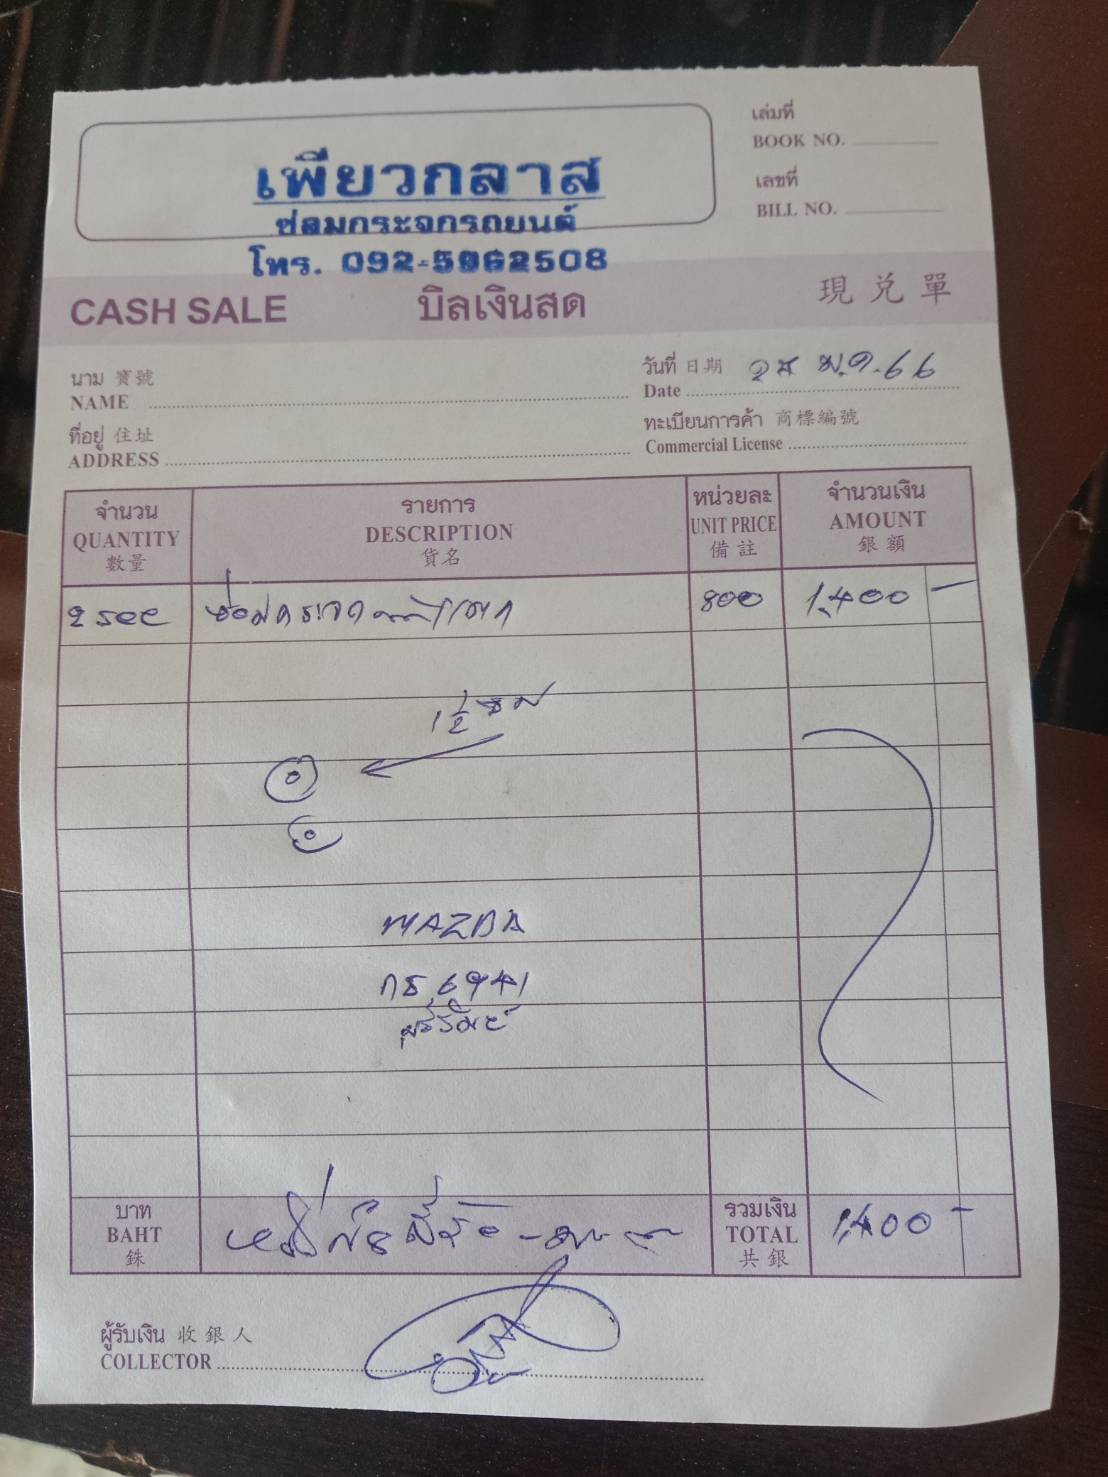 เล่มที่
BOOK NO.
เลขที่
BILL NO.
เพียวกลาส
ซ่อมกระจกรถยนต์
โทร. 092-5962508
CASH SALE บิลเงินสด 現兑單
นาม 寶號
NAME
วันที่ 日期
Date
66
ที่อยู่ 住址
ADDRESS
ทะเบียนการค้า 商標編號
Commercial License
จำนวน รายการ หน่วยละ จำนวนเงิน
QUANTITY DESCRIPTION UNIT PRICE AMOUNT
數量 貨名 備註 銀額
2 รอย ซ่อมกระจกหน้าแตก 800 1,400 -
1 1/2 ซม
MAZDA
กธ 6941
บาท รวมเงิน
BAHT หนึ่งพันสี่ร้อย TOTAL 1,400 -
銖 共銀
ผู้รับเงิน 收銀人
COLLECTOR